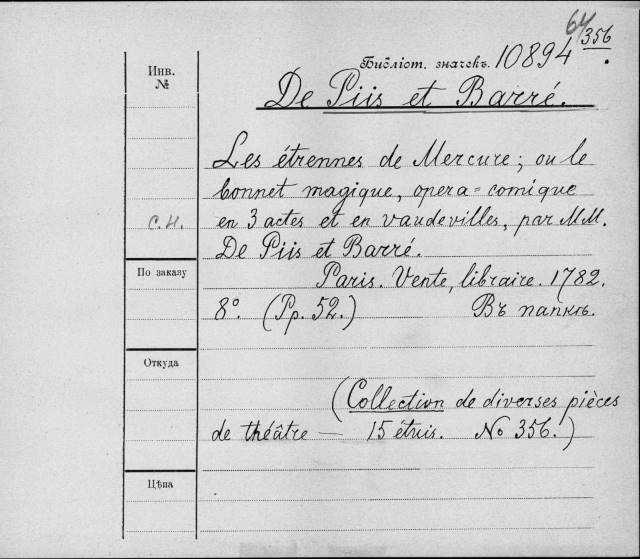 64
Библіот. значекъ. 10894 356.
Инв.
№
De Piis et Barré.
Les étrennes de Mercure; ou le
bonnet magique, opera=comique
с.н. en 3 actes et en vaudevilles, par MM.
De Piis et Barré.
По заказу
Paris. Vente, libraire. 1782.
8°. (Pp. 52.) Въ папкѣ.
Откуда
(Collection de diverses pièces
de théâtre — 15 étuis. No 356.)
Цѣна